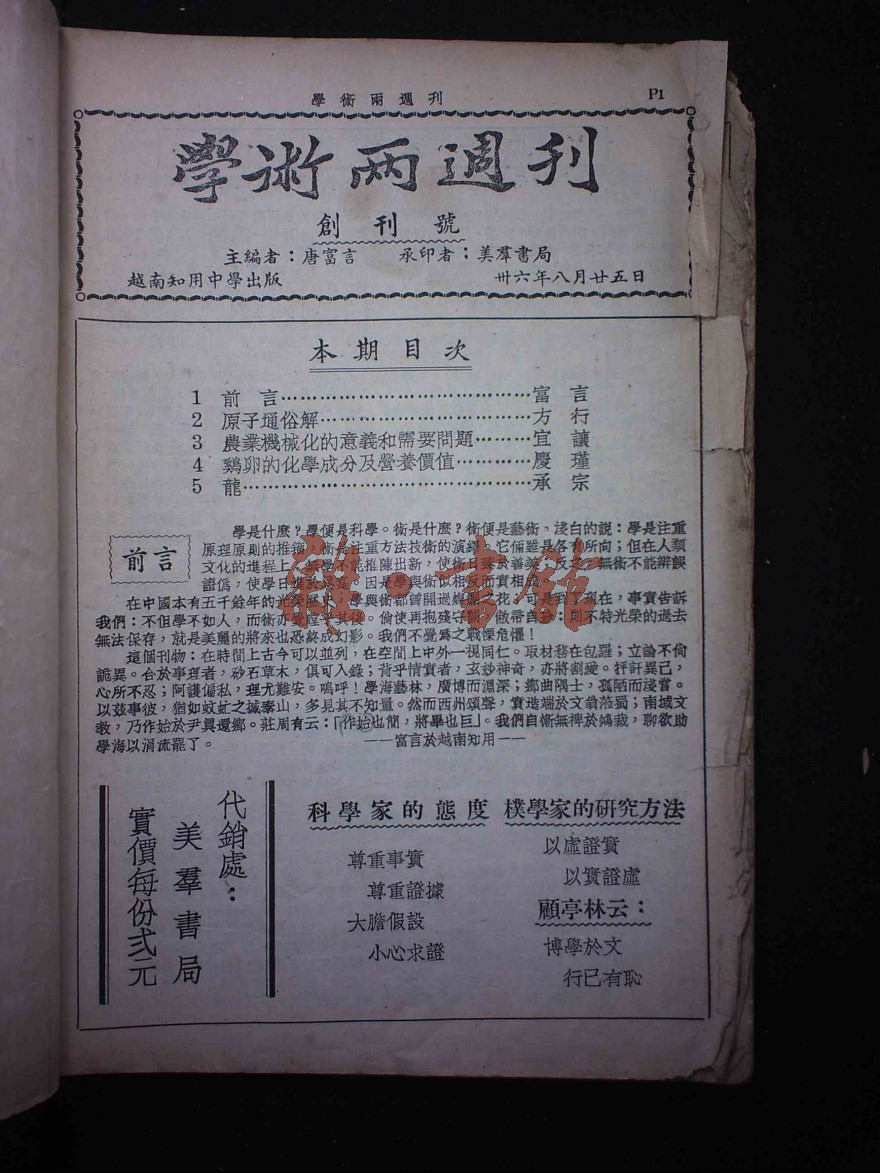 學術兩週刊 P1
學術兩週刊
創刊號
主編者：唐富言 承印者：美羣書局
越南知用中學出版 卅六年八月廿五日
本期目次
1 前言…………………………富言
2 原子通俗解……………………方行
3 農業機械化的意義和需要問題………宜讓
4 鷄卵的化學成分及營養價值…………慶瑾
5 龍……………………………承宗
前言
學是什麼？學便是科學。術是什麼？術便是藝術，淺白的說：學是注重
原理原則的推籀，術是注重方法技術的演繹。它倆雖是各有所向；但在人類
文化的進程上，無學不能推陳出新，使術日臻於善美；反之，無術不能辨誤
證僞，使學日進於。因是學與術似相反而實相。
在中國本有五千餘年的光榮歷史，學與術都曾開過燦爛之花，可是到了現在，事實告訴
我們：不但學不如人，而術亦瞠乎其後。倘使再抱殘守闕，敝帚自珍：則不特光榮的過去
無法保存，就是美麗的將來也恐終成幻影。我們不覺爲之戰慄危懼！
這個刊物：在時間上古今可以並列，在空間上中外一視同仁。取材務在包羅；立論不尙
詭異。合於事理者，砂石草木，俱可入錄；背乎情實者，玄妙神奇，亦將割愛。抨訐異己，
心所不忍；阿護偏私，理尤難安。嗚呼！學海藝林，廣博而淵深；鄉曲隅士，孤陋而淺嘗。
以茲事彼，猶如蚊虻之撼泰山，多見其不知量。然而西州頌聲，實造端於文翁蒞蜀；南域文
敎，乃作始於尹眞還鄉。莊周有云：「作始也簡，將畢也巨」。我們自慚無裨於鴻裁，聊欲助
學海以涓流罷了。 ——富言於越南知用——
樸學家的研究方法
以虛證實
以實證虛
顧亭林云：
博學於文
行已有恥
科學家的態度
尊重事實
尊重證據
大膽假設
小心求證
代銷處：
美羣書局
實價每份弍元
雜·書館